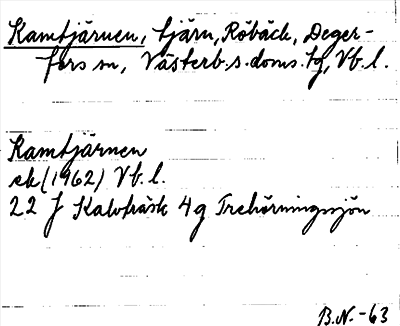 Kamtjärnen, tjärn, Röbäck, Deger-
fors sn, Västerb. s. doms. tg, Vb. l.
Kamtjärnen
ek (1962) Vb. l.
22 J Kalvträsk 4 g Trehörningssjön
B.N. -63